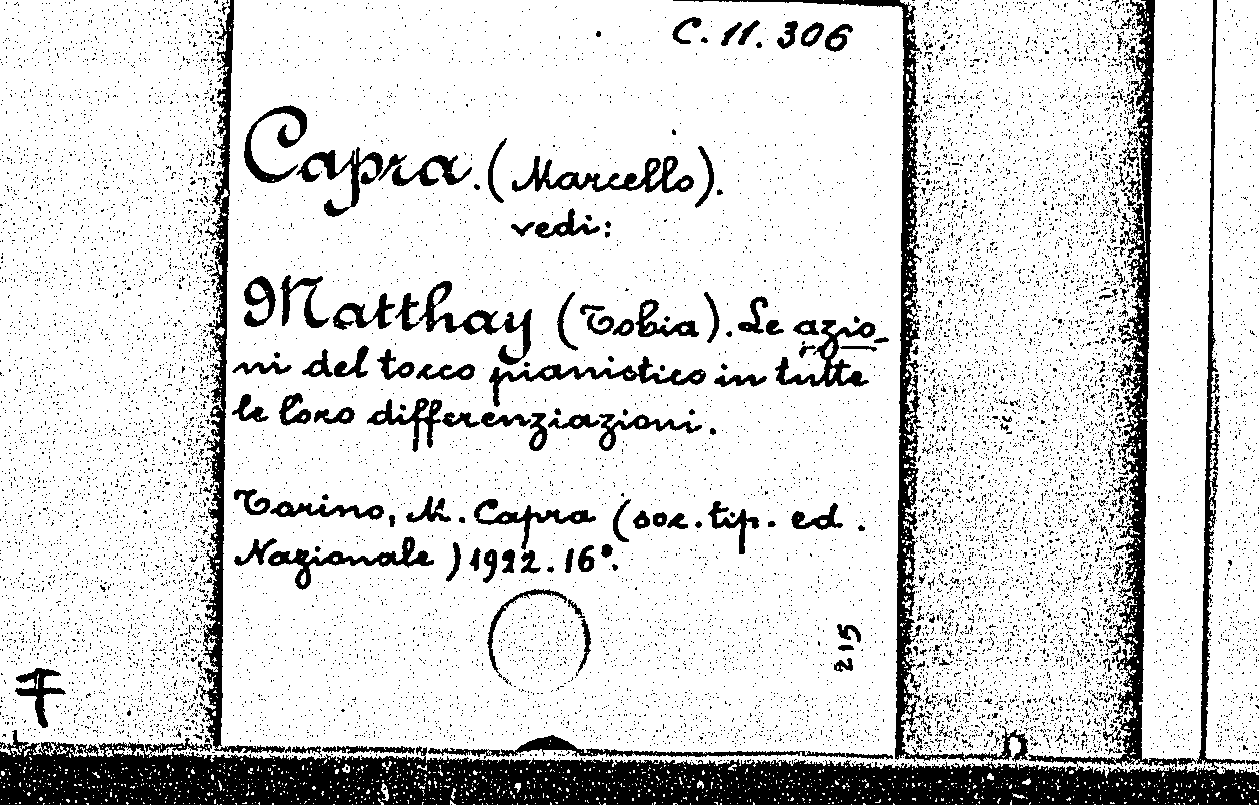 C. 11. 306
Capra. (Marcello).
vedi:
Matthay (Tobia). Le azio-
ni del tocco pianistico in tutte
le loro differenziazioni.
Torino, M. Capra (soc. tip. ed.
Nazionale) 1922. 16°.
215